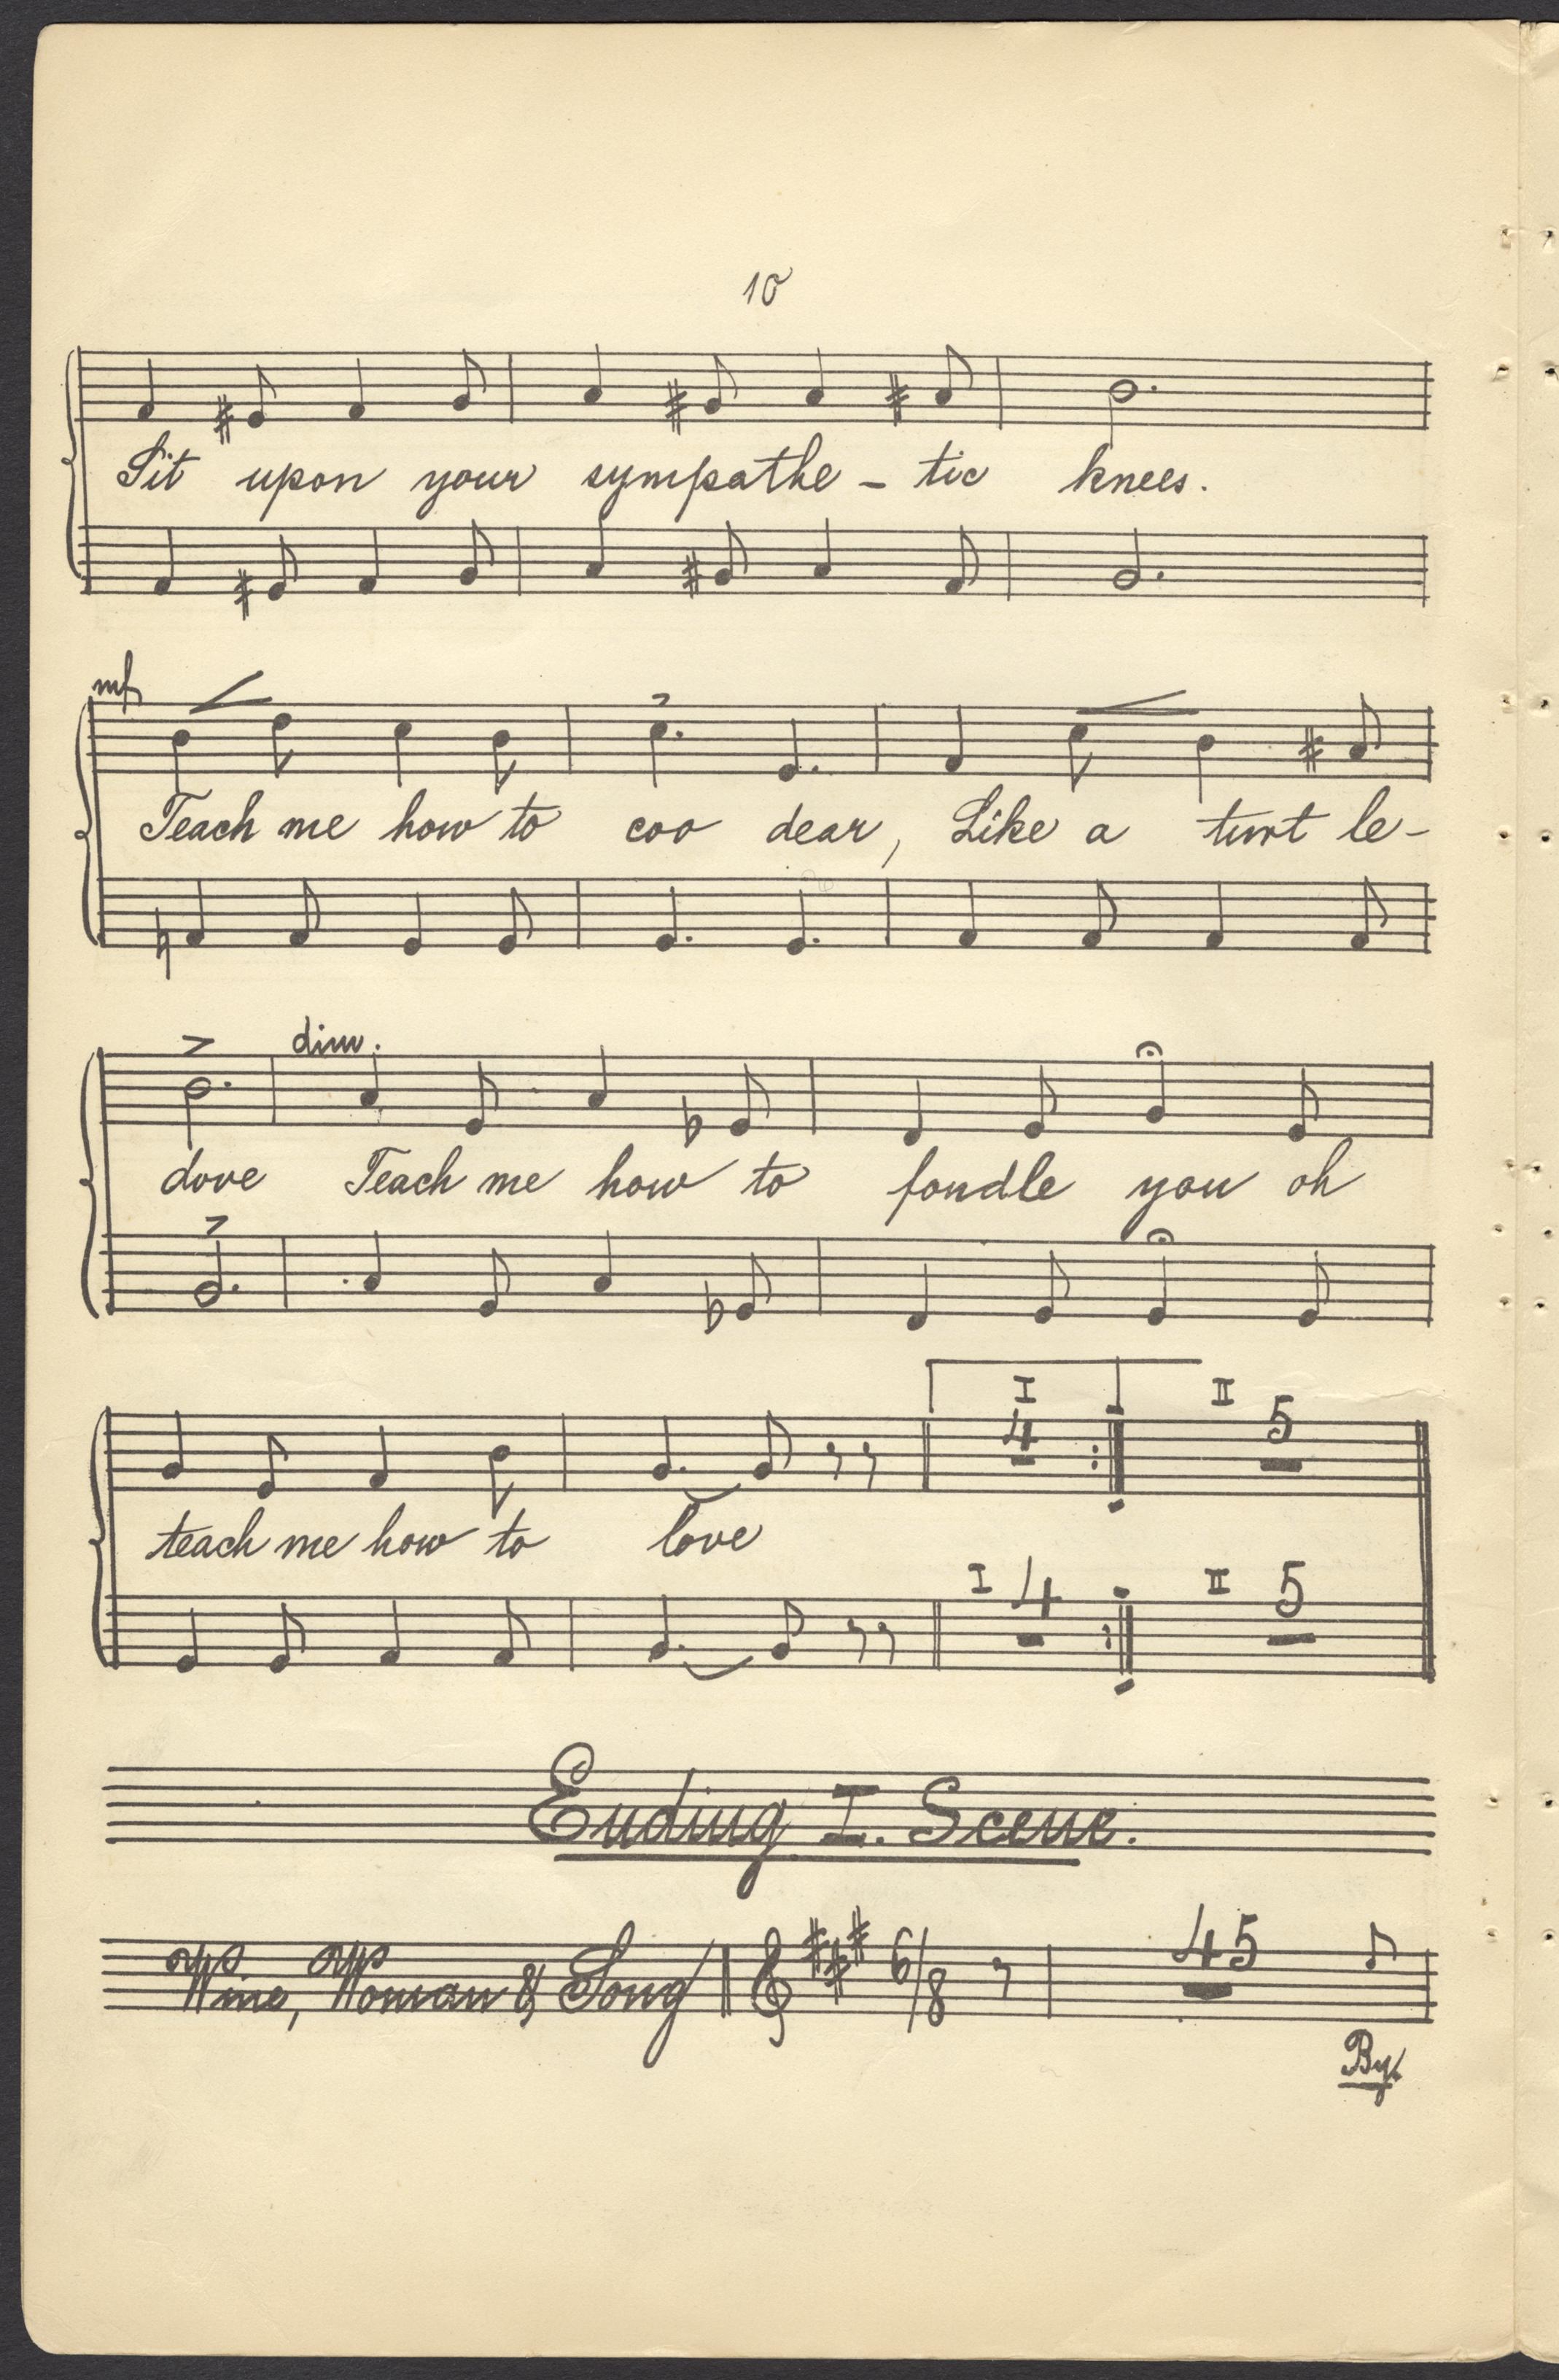 10
Sit upon your sympathe - tic knees.
mf
Teach me how to coo dear, Like a turt le-
dim.
dove Teach me how to fondle you oh
I II
4 5
teach me how to love
I 4 II 5
Ending I. Scene.
Wine, Woman & Song 6/8 45
By